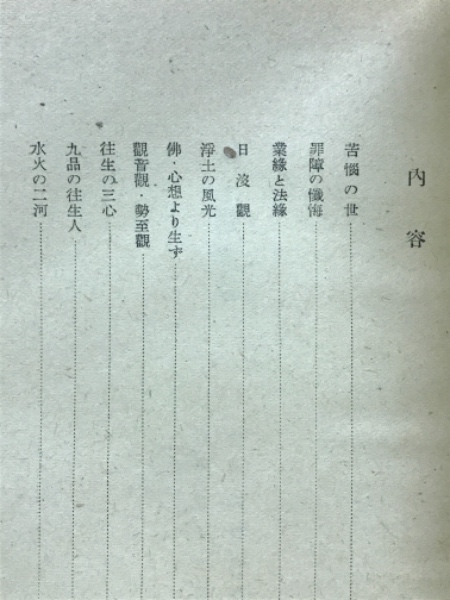 內容
苦惱の世
罪障の懺悔
業緣と法緣
日沒觀
淨土の風光
佛・心想より生ず
觀音觀・勢至觀
往生の三心
九品の往生人
水火の二河